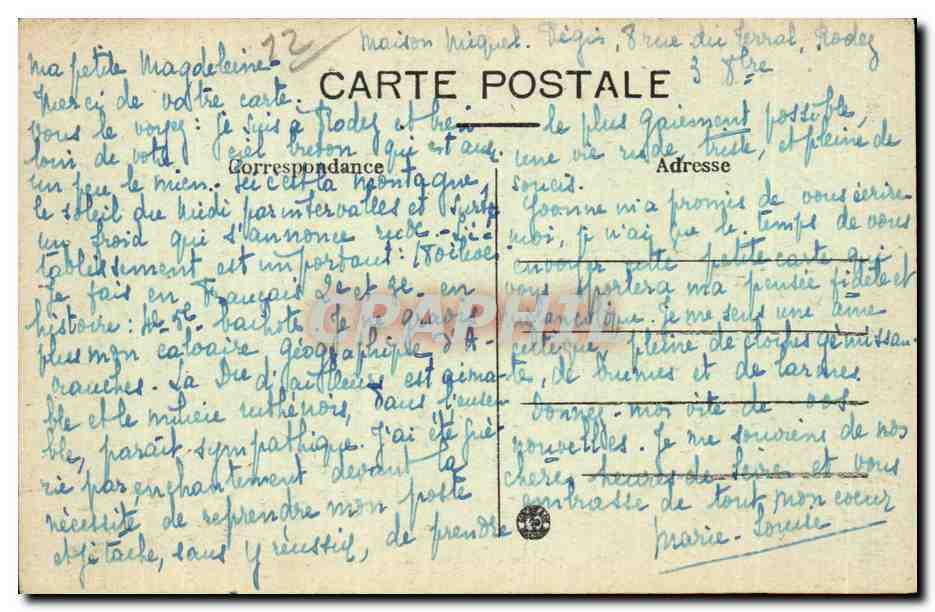 22
Maison Miquel. Pégis, 8 rue du Terral, Rodez
3 8bre
Ma petite Magdeleine
CARTE POSTALE
Merci de votre carte.
Vous le voyez : je suis à Rodez et bien
loin de votre ciel breton qui est aussi
Correspondance
un peu le mien. Ici c'est la montagne,
le soleil du Midi par intervalles et surtt
un froid qui s'annonce rude. L'é-
tablissement est important :
Je fais en Français 2e et 3e - en
histoire : 4e 5e bachots. Je
plus mon calvaire géographique d'A-
vranches. La Dre d'ailleurs est aima-
ble et le milieu ruthénois, dans l'ensem-
ble, paraît sympathique. J'ai été gué-
rie par enchantement devant la
nécessité de reprendre mon poste
et je tâche, sans y réussir, de prendre
le plus gaiement possible,
une vie rude, triste, et pleine de
Adresse
soucis.
Yvonne m'a promis de vous écrire
moi, je n'ai que le temps de vous
envoyer cette petite carte qui
vous portera ma pensée fidèle et
mélancolique. Je me sens une âme
celtique, pleine de cloches gémissan-
te, de brumes et de larmes.
Donnez-moi vite de vos
nouvelles. Je me souviens de nos
chères heures de et vous
embrasse de tout mon coeur
Marie-Louise
CPARAMA